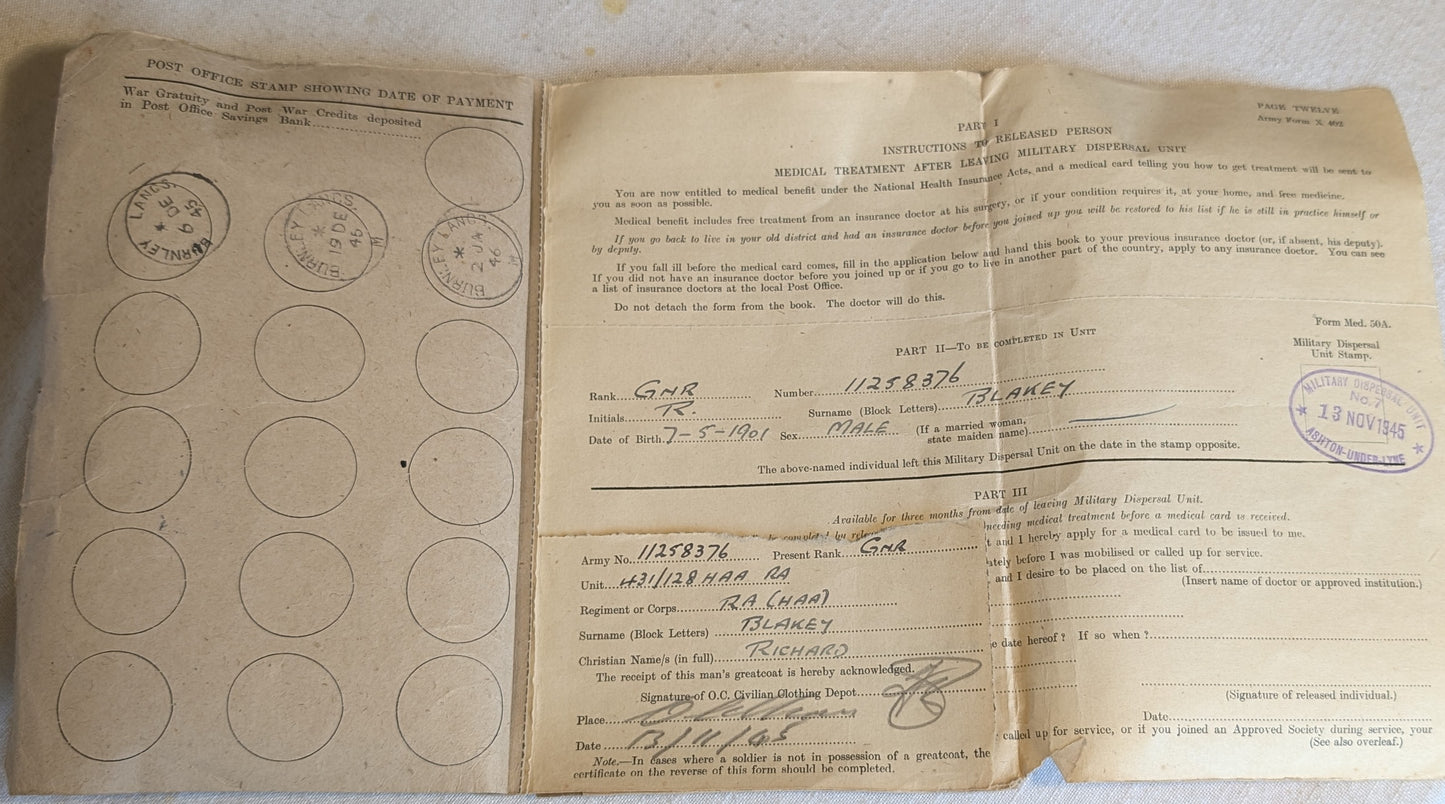 POST OFFICE STAMP SHOWING DATE OF PAYMENT
War Gratuity and Post War Credits deposited
in Post Office Savings Bank
BURNLEY LANCS.
6 DE
45
BURNLEY LANCS.
19 DE
45
BURNLEY LANCS.
2 JA
46
PAGE TWELVE
Army Form X.
PART I
INSTRUCTIONS TO RELEASED PERSON
MEDICAL TREATMENT AFTER LEAVING MILITARY DISPERSAL UNIT
You are now entitled to medical benefit under the National Health Insurance Acts, and a medical card telling you how to get treatment will be sent to
you as soon as possible.
Medical benefit includes free treatment from an insurance doctor at his surgery, or if your condition requires it, at your home, and free medicine.
If you go back to live in your old district and had an insurance doctor before you joined up you will be restored to his list if he is still in practice himself or
by deputy.
If you fall ill before the medical card comes, fill in the application below and hand this book to your previous insurance doctor (or, if absent, his deputy).
If you did not have an insurance doctor before you joined up or if you go to live in another part of the country, apply to any insurance doctor. You can see
a list of insurance doctors at the local Post Office.
Do not detach the form from the book. The doctor will do this.
Form Med. 50A.
PART II—TO BE COMPLETED IN UNIT
Military Dispersal
Unit Stamp.
Rank GNR Number 11258376
Initials R. Surname (Block Letters) BLAKEY
Date of Birth 7-5-1901 Sex MALE (If a married woman,
state maiden name)
MILITARY DISPERSAL UNIT
No. 7
13 NOV 1945
ASHTON-UNDER-LYNE
The above-named individual left this Military Dispersal Unit on the date in the stamp opposite.
PART III
Available for three months from date of leaving Military Dispersal Unit.
needing medical treatment before a medical card is received.
and I hereby apply for a medical card to be issued to me.
before I was mobilised or called up for service.
and I desire to be placed on the list of
(Insert name of doctor or approved institution.)
date hereof? If so when?
(Signature of released individual.)
Date
called up for service, or if you joined an Approved Society during service, your
(See also overleaf.)
Army No. 11258376 Present Rank GNR
Unit 431/128 HAA RA
Regiment or Corps RA (HAA)
Surname (Block Letters) BLAKEY
Christian Name/s (in full) RICHARD
The receipt of this man's greatcoat is hereby acknowledged.
Signature of O.C. Civilian Clothing Depot
Place
Date 13/11/45
Note.—In cases where a soldier is not in possession of a greatcoat, the
certificate on the reverse of this form should be completed.